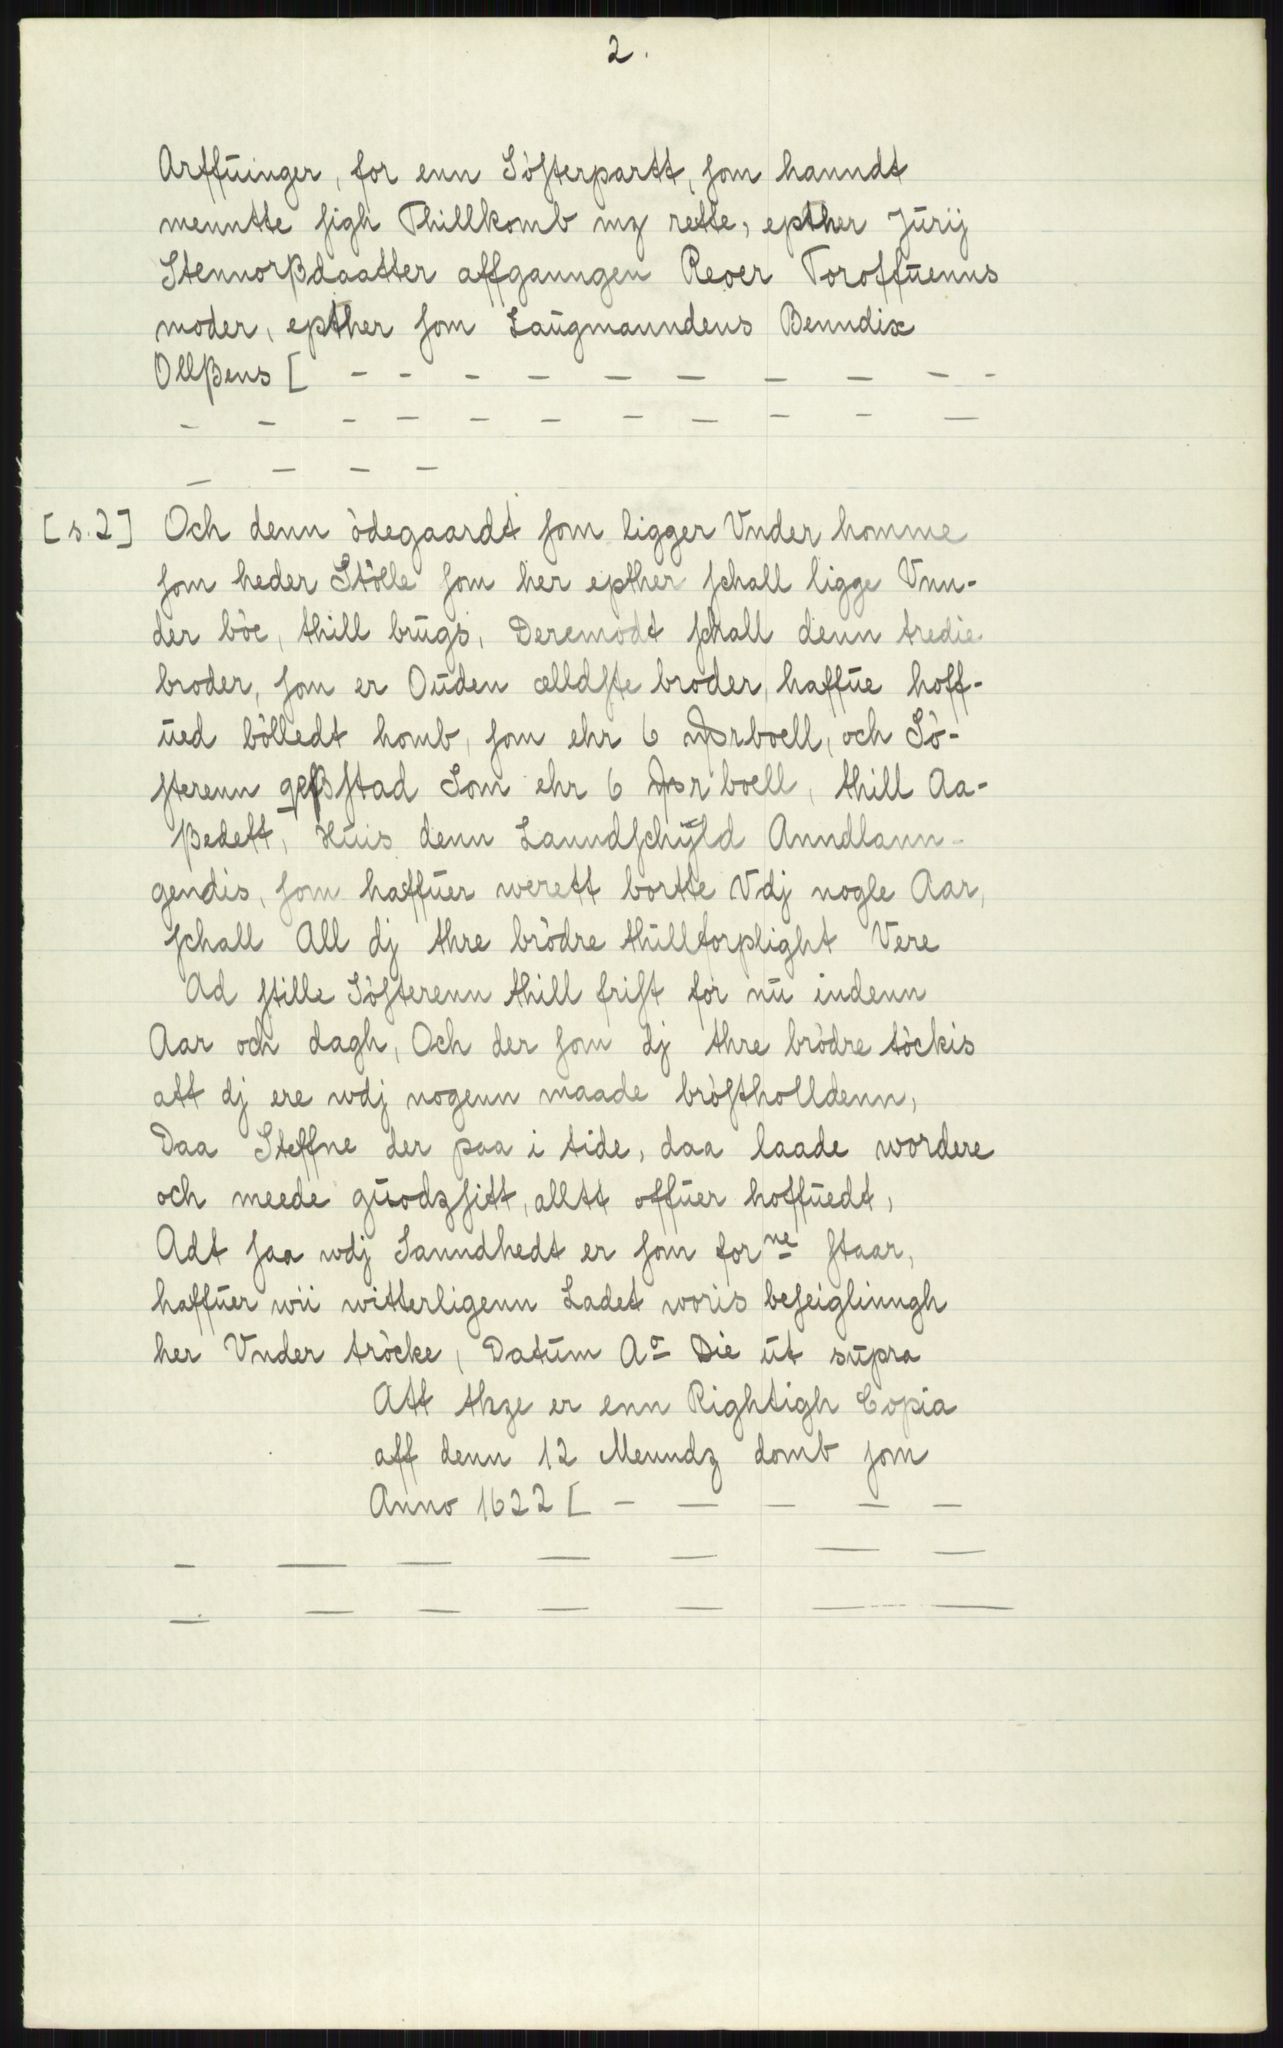 2.
Arffuinger, for enn Söſterpartt, ſom hanndt
menntte ſigh Thillkomb mz rette, epther Jurij
Stennorßdaatter affganngen Reoer Toroffuenns
moder, epther ſom Laugmanndens Benndix
Ollßens [ — — — — — — — — — —
— — — — — — — — — — —
— — — —
[s.2] Och denn ödegaardt ſom ligger Vnder homme
ſom heder Stölle ſom her epther ſchall ligge Vnn-
der böe, thill brugs, Deremodt ſchall denn tredie
broder, ſom er Ouden ælldſte broder, haffue hoff-
ued bölledt homb, ſom ehr 6 boell, och Sö-
ſterenn ſtad Som ehr 6 boell, thill Aa-
ßedett, Huis denn Lanndſchyld Anndlann-
gendis, ſom haffuer werett bortte Vdj nogle Aar,
ſchall All dj thre brödre thullforplight Vere
Ad ſtille Söſterenn thill friſt for nu indenn
Aar och dagh, Och der ſom dj thre brödre töckis
att dj ere wdj nogenn maade bröſtholldenn,
Daa Steffne der paa i tide, daa laade wordere
och meede guodzſitt, alltt offuer hoffuedt,
Adt ſaa wdj Sanndhedt er ſom forne ſtaar,
haffuer wii witterligenn Ladet woris beſeiglinngh
her Vnder tröcke, Datum Ao Die ut supra
Att thze er enn Rightigh Copia
aff denn 12 Menndz domb ſom
Anno 1622 [ — — — — —
— — — — — — —
— — — — — — —